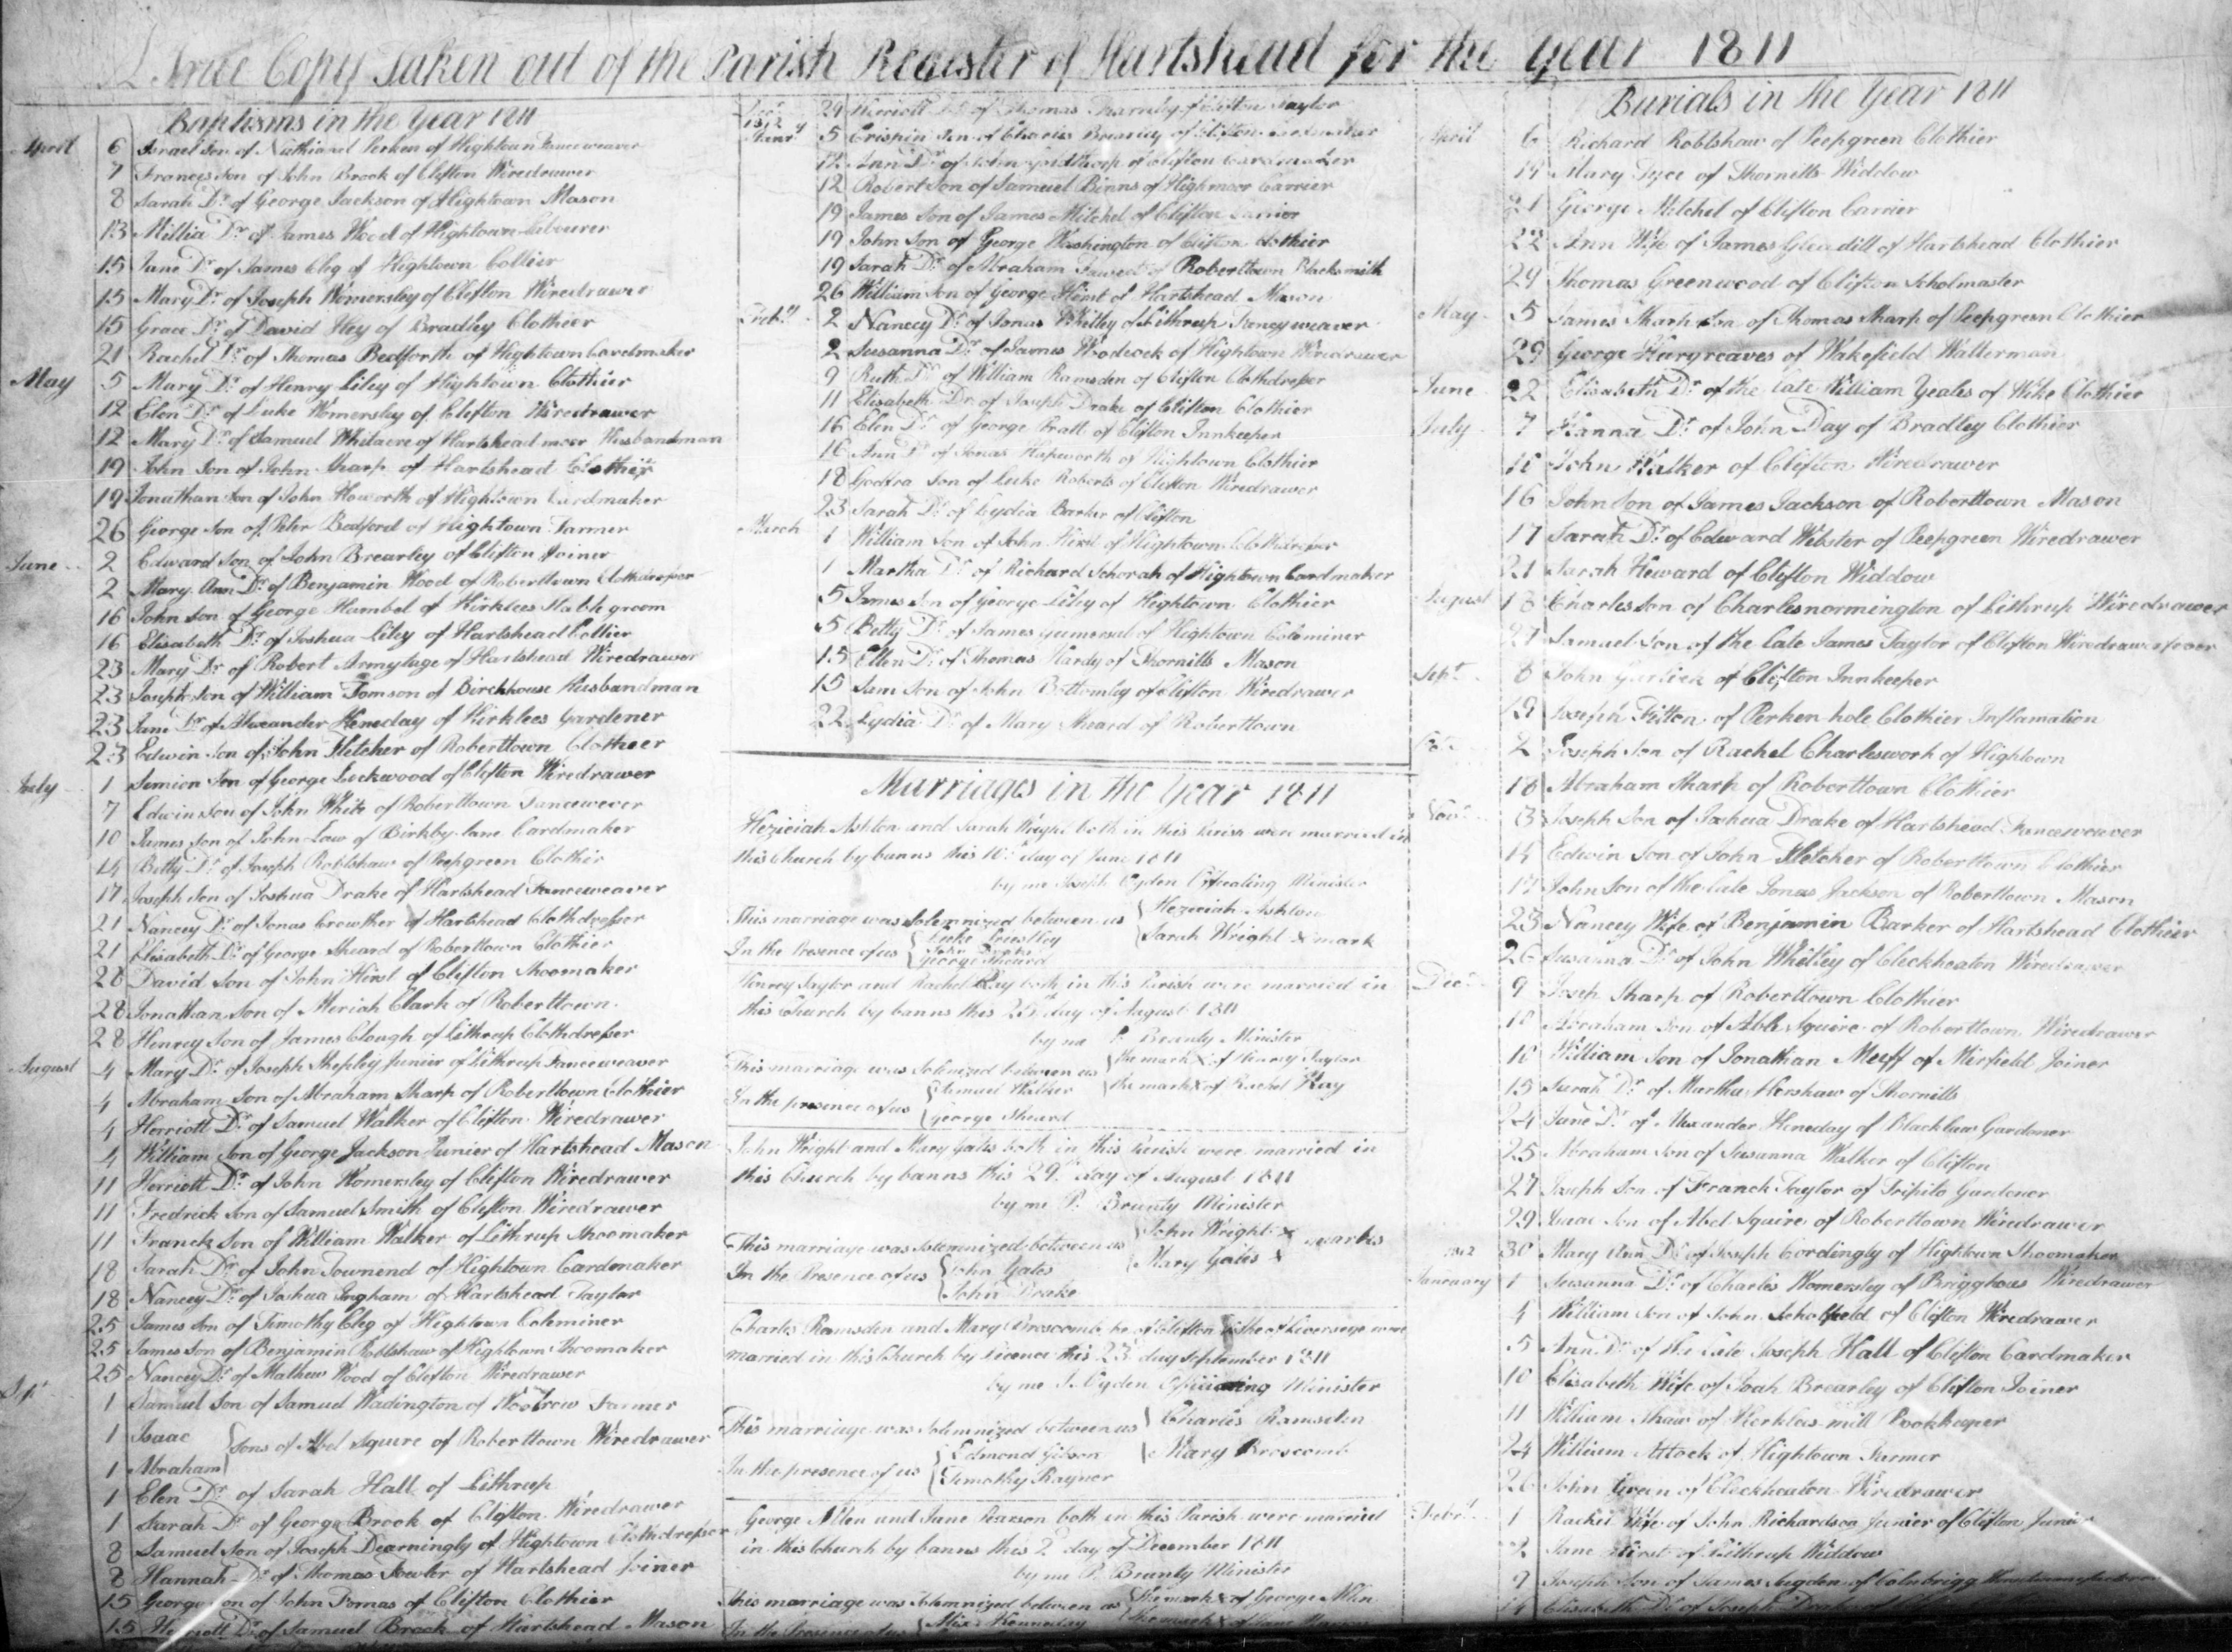 A True Copy Taken out of the Parish Register of Hartshead for the Year 1811
Baptisms in the Year 1811
April 6 Israel Son of Nathianel Perken of Hightown Fanceweaver
7 Frances Son of John Brook of Clifton Wiredrawer
8 Sarah Dr. of George Jackson of Hightown Mason
13 Millia Dr. of James Wood of Hightown Labourer
15 Jane Dr. of James Cleg of Hightown Collier
15 Mary Dr. of Joseph Womersley of Clifton Wiredrawer
15 Grace Dr. of David Hey of Bradley Clothier
21 Rachel Dr. of Thomas Bedforth of Hightown Cardmaker
May 5 Mary Dr. of Henry Liley of Hightown Clothier
12 Elen Dr. of Luke Womersley of Clifton Wiredrawer
12 Mary Dr. of Samuel Whitacre of Hartshead moor Husbandman
19 John Son of John Sharp of Hartshead Clothier
19 Jonathan Son of John Howorth of Hightown Cardmaker
26 George Son of Peter Bedford of Hightown Farmer
June 2 Edward Son of John Brearley of Clifton Joiner
2 Mary Ann Dr. of Benjamin Wood of Roberttown Clothdresser
16 John Son of George Humbel of Kirklees Stable groom
16 Elisabeth Dr. of Joshua Liley of Hartshead Collier
23 Mary Dr. of Robert Armytage of Hartshead Wiredrawer
23 Joseph Son of William Tomson of Birchhouse Husbandman
23 Jane Dr. of Alexander Heneday of Kirklees Gardener
23 Edwin Son of John Fletcher of Roberttown Clothier
July 1 Simion Son of George Lockwood of Clifton Wiredrawer
7 Edwin Son of John White of Roberttown Fancewever
10 James Son of John Low of Birkby lane Cardmaker
14 Betty Dr. of Joseph Roblshaw of Peepgreen Clothier
17 Joseph Son of Joshua Drake of Hartshead Fanceweaver
21 Nancey Dr. of Jonas Crowther of Hartshead Clothdresser
21 Elisabeth Dr. of George Sheard of Roberttown Clothier
28 David Son of John Hirst of Clifton Shoomaker
28 Jonathan Son of Meriah Clark of Roberttown
28 Henrey Son of James Clough of Lithrup Clothdresser
August 4 Mary Dr. of Joseph Shepley Junier of Lithrup Fanceweaver
4 Abraham Son of Abraham Sharp of Roberttown Clothier
4 Herriott Dr. of Samuel Walker of Clifton Wiredrawer
4 William Son of George Jackson Junier of Hartshead Mason
11 Herriott Dr. of John Womersley of Clifton Wiredrawer
11 Fredrick Son of Samuel Smith of Clifton Wiredrawer
11 Franck Son of William Walker of Lithrup Shoomaker
18 Sarah Dr. of John Townend of Hightown Cardmaker
18 Nancey Dr. of Joshua Ingham of Hartshead Taylor
25 James Son of Timothy Cleg of Hightown Colminer
25 James Son of Benjamin Roblshaw of Hightown Shoomaker
25 Nancey Dr. of Mathew Wood of Clifton Wiredrawer
Sept. 1 Samuel Son of Samuel Wadington of Woolrow Farmer
1 Isaac
1 Abraham } Sons of Abel Squire of Roberttown Wiredrawer
1 Elen Dr. of Sarah Hall of Lithrup
1 Sharah Dr. of George Brook of Clifton Wiredrawer
8 Samuel Son of Joseph Dearningly of Hightown Clothdresser
8 Hannah Dr. of Thomas Fowler of Hartshead Joiner
15 George Son of John Tomas of Clifton Clothier
15 Herriott Dr. of Samuel Brook of Hartshead Mason
29 Herriott Dr. of Thomas of Clifton Taylor
1812
Janry 5 Crispin Son of Charles of Clifton Cardmaker
12 Ann Dr. of John Goldthorp of Clifton Cardmaker
12 Robert Son of Samuel Binns of Highmoor Carrier
19 James Son of James Mitchel of Clifton Carrier
19 John Son of George Washington of Clifton Clothier
19 Sarah Dr. of Abraham of Roberttown Blacksmith
26 William Son of George Hirst of Hartshead Mason
Febry 2 Nancey Dr. of Jonas Whitley of Lithrup Fancyweaver
2 Susanna Dr. of James Woodcock of Hightown Wiredrawer
9 Ruth Dr. of William Ramsden of Clifton Clothdresser
11 Elisabeth Dr. of Joseph Drake of Clifton Clothier
16 Elen Dr. of George Pratt of Clifton Innkeeper
16 Ann Dr. of Jonas Hepworth of Hightown Clothier
18 Godfra Son of Luke Roberts of Clifton Wiredrawer
23 Sarah Dr. of Lydia Barker of Clifton
March 1 William Son of John Hirst of Hightown Clothdresser
1 Martha Dr. of Richard Schorah of Hightown Cardmaker
5 James Son of George Liley of Hightown Clothier
5 Betty Dr. of James Gumersul of Hightown Colominer
15 Ellen Dr. of Thomas Hardy of Thornills Mason
15 Sam Son of John Bottomley of Clifton Wiredrawer
22 Lydia Dr. of Mary Sheard of Roberttown
Marriages in the Year 1811
Heziciah Ashton and Sarah Wright both in this Parish were married in
this Church by banns this 10th day of June 1811
by me Joseph Ogden Officating Minister
This marriage was Solemnized between us { Heziciah Ashton
Sarah Wright X mark
In the Presence of us { Luke Priestley
John Drake
George Sheard
Henrey Taylor and Rachel Kay both in this Parish were married in
this Church by banns this 25th day of August 1811
by me P. Brunty Minister
This marriage was Solenized between us { the mark X of Henrey Taylor
the mark X of Rachel Kay
In the presence of us { Samuel Walker
George Sheard
John Wright and Mary Gates both in this Parish were married in
this Church by banns this 29th day of August 1811
by me P. Brunty Minister
This marriage was Solemnized between us { John Wright X
Mary Gates X marks
In the Presence of us { John Gates
John Drake
Charles Ramsden and Mary Broscomb he of Clifton & She of Liversege were
married in this Church by Licence this 23d day September 1811
by me J. Ogden Officiating Minister
This marriage was Solemnized between us { Charles Ramsden
Mary Broscomb
In the presence of us { Edmond Gibson
Timothy Rayner
George Allen and Jane Pearson both in this Parish were married
in this Church by banns this 2d day of December 1811
by me P. Brunty Minister
This marriage was Solemnized between us { The mark X of George Allen
The mark X of Jane
In the Presence of us { Alix. Kennedey
Burials in the Year 1811
April 6 Richard Roblshaw of Peepgreen Clothier
19 Mary Tyce of Thornills Widdow
21 George Mitchel of Clifton Carrier
22 Ann Wife of James Gleadill of Hartshead Clothier
29 Thomas Greenwood of Clifton Scholmaster
May 5 James Sharp Son of Thomas Sharp of Peepgreen Clothier
29 George Hargreaves of Wakefield Walterman
June 22 Elisabeth Dr. of the Late William Yeales of Wike Clothier
July 7 Hanna Dr. of John Day of Bradley Clothier
11 John Walker of Clifton Wiredrawer
16 John Son of James Jackson of Roberttown Mason
17 Sarah Dr. of Edward Webster of Peepgreen Wiredrawer
21 Sarah Heward of Clifton Widdow
August 18 Charles Son of Charlesnormington of Lithrup Wiredrawer
27 Samuel Son of the Late James Taylor of Clifton Wiredrawer fever
Sept. 8 John Garlick of Clifton Innkeeper
19 Joseph Fitton of Perken hole Clothier Inflamation
Oct. 2 Joseph Son of Rachel Charlesworh of Hightown
18 Abraham Sharp of Roberttown Clothier
Novr. 3 Joseph Son of Joshua Drake of Hartshead Fanceweaver
14 Edwin Son of John Fletcher of Roberttown Clothier
17 John Son of the Late Jonas Jackson of Roberttown Mason
23 Nancey Wife of Benjamin Barker of Hartshead Clothier
26 Susanna Dr. of John Whitley of Cleckheaton Wiredrawer
Decr. 9 Joseh Sharp of Roberttown Clothier
10 Abraham Son of Able Squire of Roberttown Wiredrawer
10 William Son of Jonathan Muff of Mirfield Joiner
15 Sarah Dr. of Martha Hershaw of Thornills
24 Jane Dr. of Alexander Heneday of Blacklaw Gardener
25 Abraham Son of Susanna Walker of Clifton
27 Joseph Son of Franck Taylor of Tripilo Gardener
29 Isaac Son of Abel Squire of Roberttown Wiredrawer
30 Mary Ann Dr. of Joseph Cordingly of Hightown Shoomaker
1812
January 1 Susanna Dr. of Charles Womersley of Brigghous Wiredrawer
4 William Son of John Scholfield of Clifton Wiredrawer
5 Ann Dr. of the Late Joseph Hall of Clifton Cardmaker
10 Elisabeth Wife of Joah Brearley of Clifton Joiner
11 William Shaw of Kerklees mill Bookkeeper
24 William Attock of Hightown Farmer
26 John Green of Cleckheaton Wiredrawer
Febry. 1 Rachel Wife of John Richardson Junier of Clifton
2 Jane Hirst of Lithrup Widdow
9 Joseph Son of James Sugden of Colnbrigg
Elisabeth Dr. of Joseph Drake of